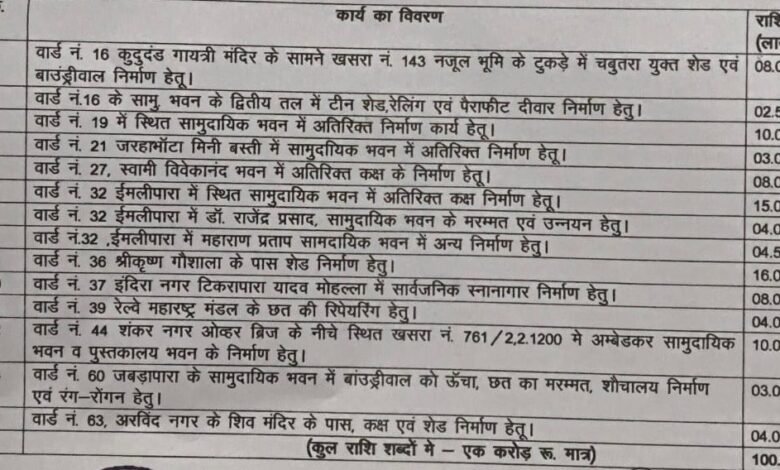 कार्य का विवरण राशि
(ला
वार्ड नं. 16 कुदुदंड गायत्री मंदिर के सामने खसरा नं. 143 नजूल भूमि के टुकड़े में चबुतरा युक्त शेड एवं 08.0
बाउंड्रीवाल निर्माण हेतू।
वार्ड नं.16 के सामु. भवन के द्वितीय तल में टीन शेड,रेलिंग एवं पैराफीट दीवार निर्माण हेतु। 02.5
वार्ड नं. 19 में स्थित सामुदायिक भवन में अतिरिक्त निर्माण कार्य हेतू। 10.0
वार्ड नं. 21 जरहाभॉटा मिनी बस्ती में सामुदायिक भवन में अतिरिक्त निर्माण हेतु। 03.0
वार्ड नं. 27, स्वामी विवेकानंद भवन में अतिरिक्त कक्ष के निर्माण हेतु। 08.0
वार्ड नं. 32 ईमलीपारा में स्थित सामुदायिक भवन में अतिरिक्त कक्ष निर्माण हेतू। 15.0
वार्ड नं. 32 ईमलीपारा में डॉ. राजेंद्र प्रसाद, सामुदायिक भवन के मरम्मत एवं उन्नयन हेतु। 04.0
वार्ड नं.32 ,ईमलीपारा में महाराण प्रताप सामदायिक भवन में अन्य निर्माण हेतु। 04.5
वार्ड नं. 36 श्रीकृष्ण गौशाला के पास शेड निर्माण हेतु। 16.0
वार्ड नं. 37 इंदिरा नगर टिकरापारा यादव मोहल्ला में सार्वजनिक स्नानागार निर्माण हेतु। 08.0
वार्ड नं. 39 रेल्वे महाराष्ट्र मंडल के छत की रिपेयरिंग हेतु। 04.0
वार्ड नं. 44 शंकर नगर ओव्हर ब्रिज के नीचे स्थित खसरा नं. 761/2,2.1200 मे अम्बेडकर सामुदायिक 10.0
भवन व पुस्तकालय भवन के निर्माण हेतु।
वार्ड नं. 60 जबड़ापारा के सामुदायिक भवन में बांउड्रीवाल को ऊँचा, छत का मरम्मत, शौचालय निर्माण 03.0
एवं रंग–रोंगन हेतु।
वार्ड नं. 63, अरविंद नगर के शिव मंदिर के पास, कक्ष एवं शेड निर्माण हेतू। 04.0
(कुल राशि शब्दों मे – एक करोड़ रू. मात्र) 100.